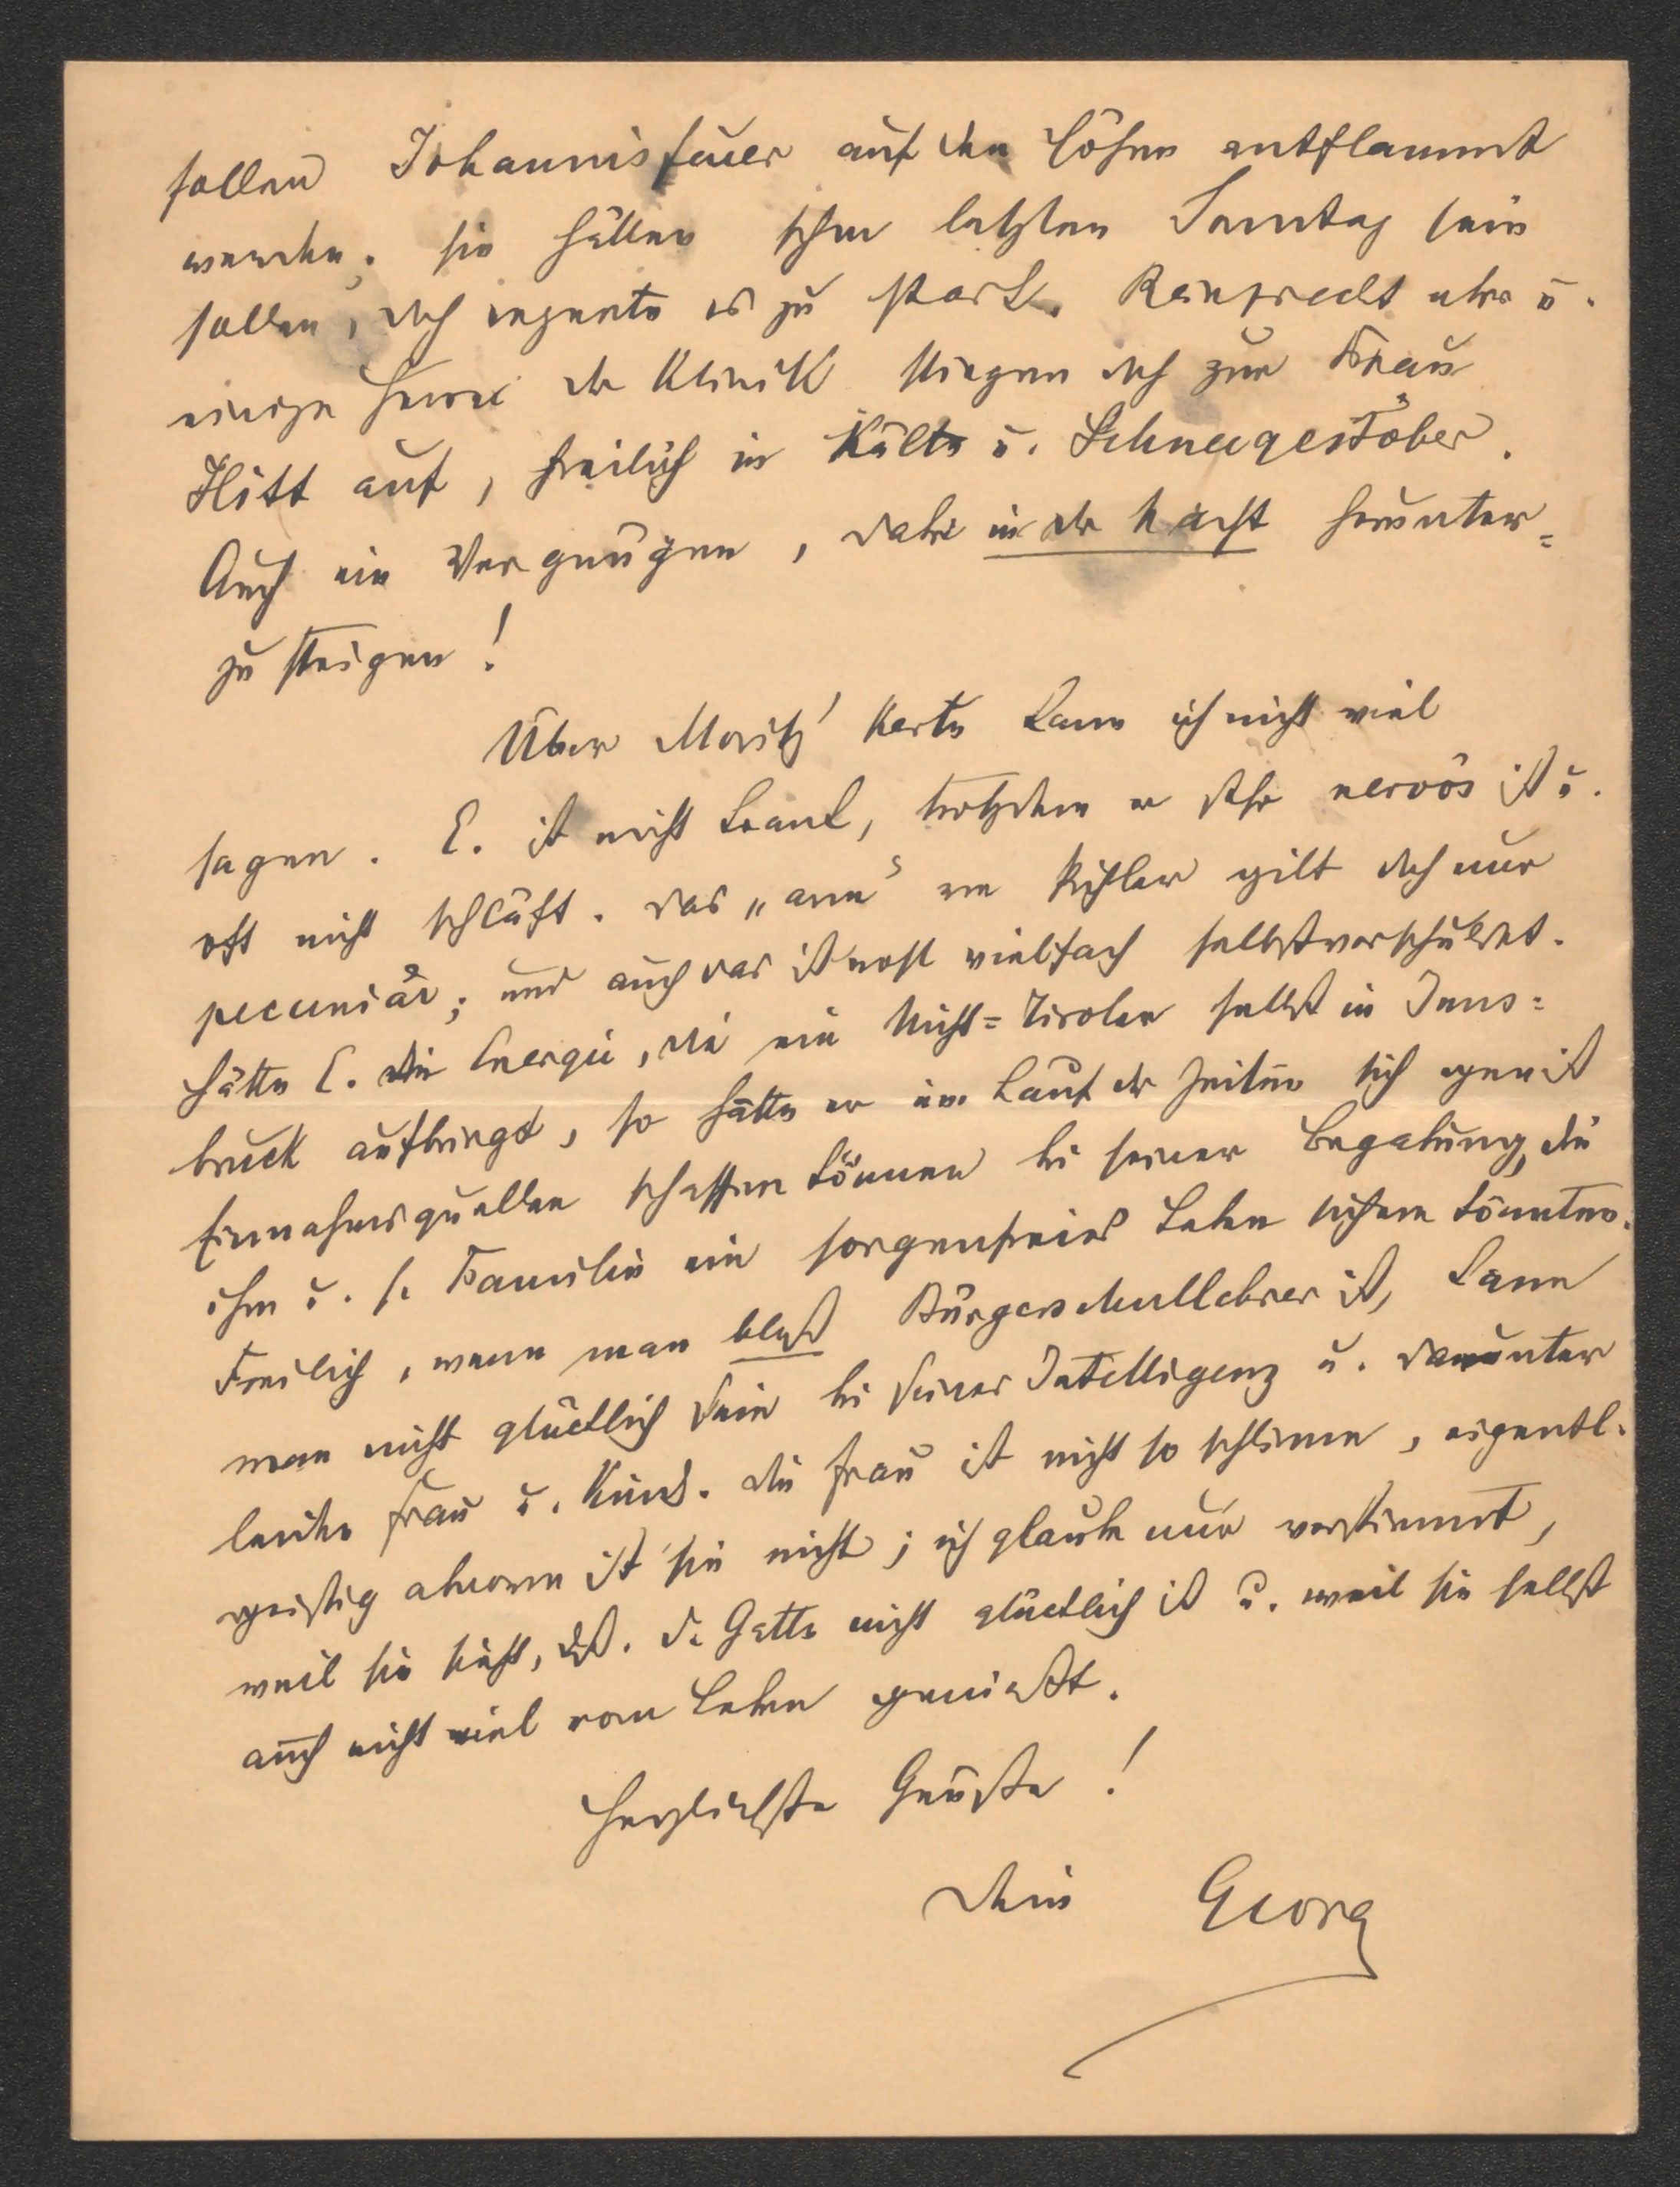 sollen Johannisfeuer auf den Höhen entflammt
werden; sie hätten schon letzten Sonntag sein
sollen, doch regnete es zu stark. Reinprecht aber u.
einige Herren der Klinik stiegen doch zur Frau
Hitt auf, freilich in Kälte u. Schneegestöber.
Auch ein Vergnügen, dabei in der Nacht herunter=
zu steigen!
Über Moritz' Karte kann ich nicht viel
sagen. E. ist nicht krank, trotzdem er sehr nervös ist u.
oft nicht schläft. Das „arm" gilt doch nur
pecuniär; und auch das ist wohl vielfach selbstverschuldet.
Hätte E. die Energie, die ein Nicht=Tiroler selbst in Inns=
bruck aufbringt, so hätte er im Lauf der Zeiten sich gewiß
Einnahmsquellen schaffen können bei seiner Begabung, die
ihm u. s. Familie ein sorgenfreies Leben sichern könnten.
Freilich, wenn man bloß Bürgerschullehrer ist, kann
man nicht glücklich sein bei seiner Intelligenz u. darunter
leiden Frau u. Kind. Die Frau ist nicht so schlimm, eigentl.
geistig abnorm ist sie nicht; ich glaube nur verstimmt,
weil sie sieht, dß. d. Gatte nicht glücklich ist u. weil sie selbst
auch nicht viel vom Leben genießt.
Herzlichste Grüße!
Dein Georg